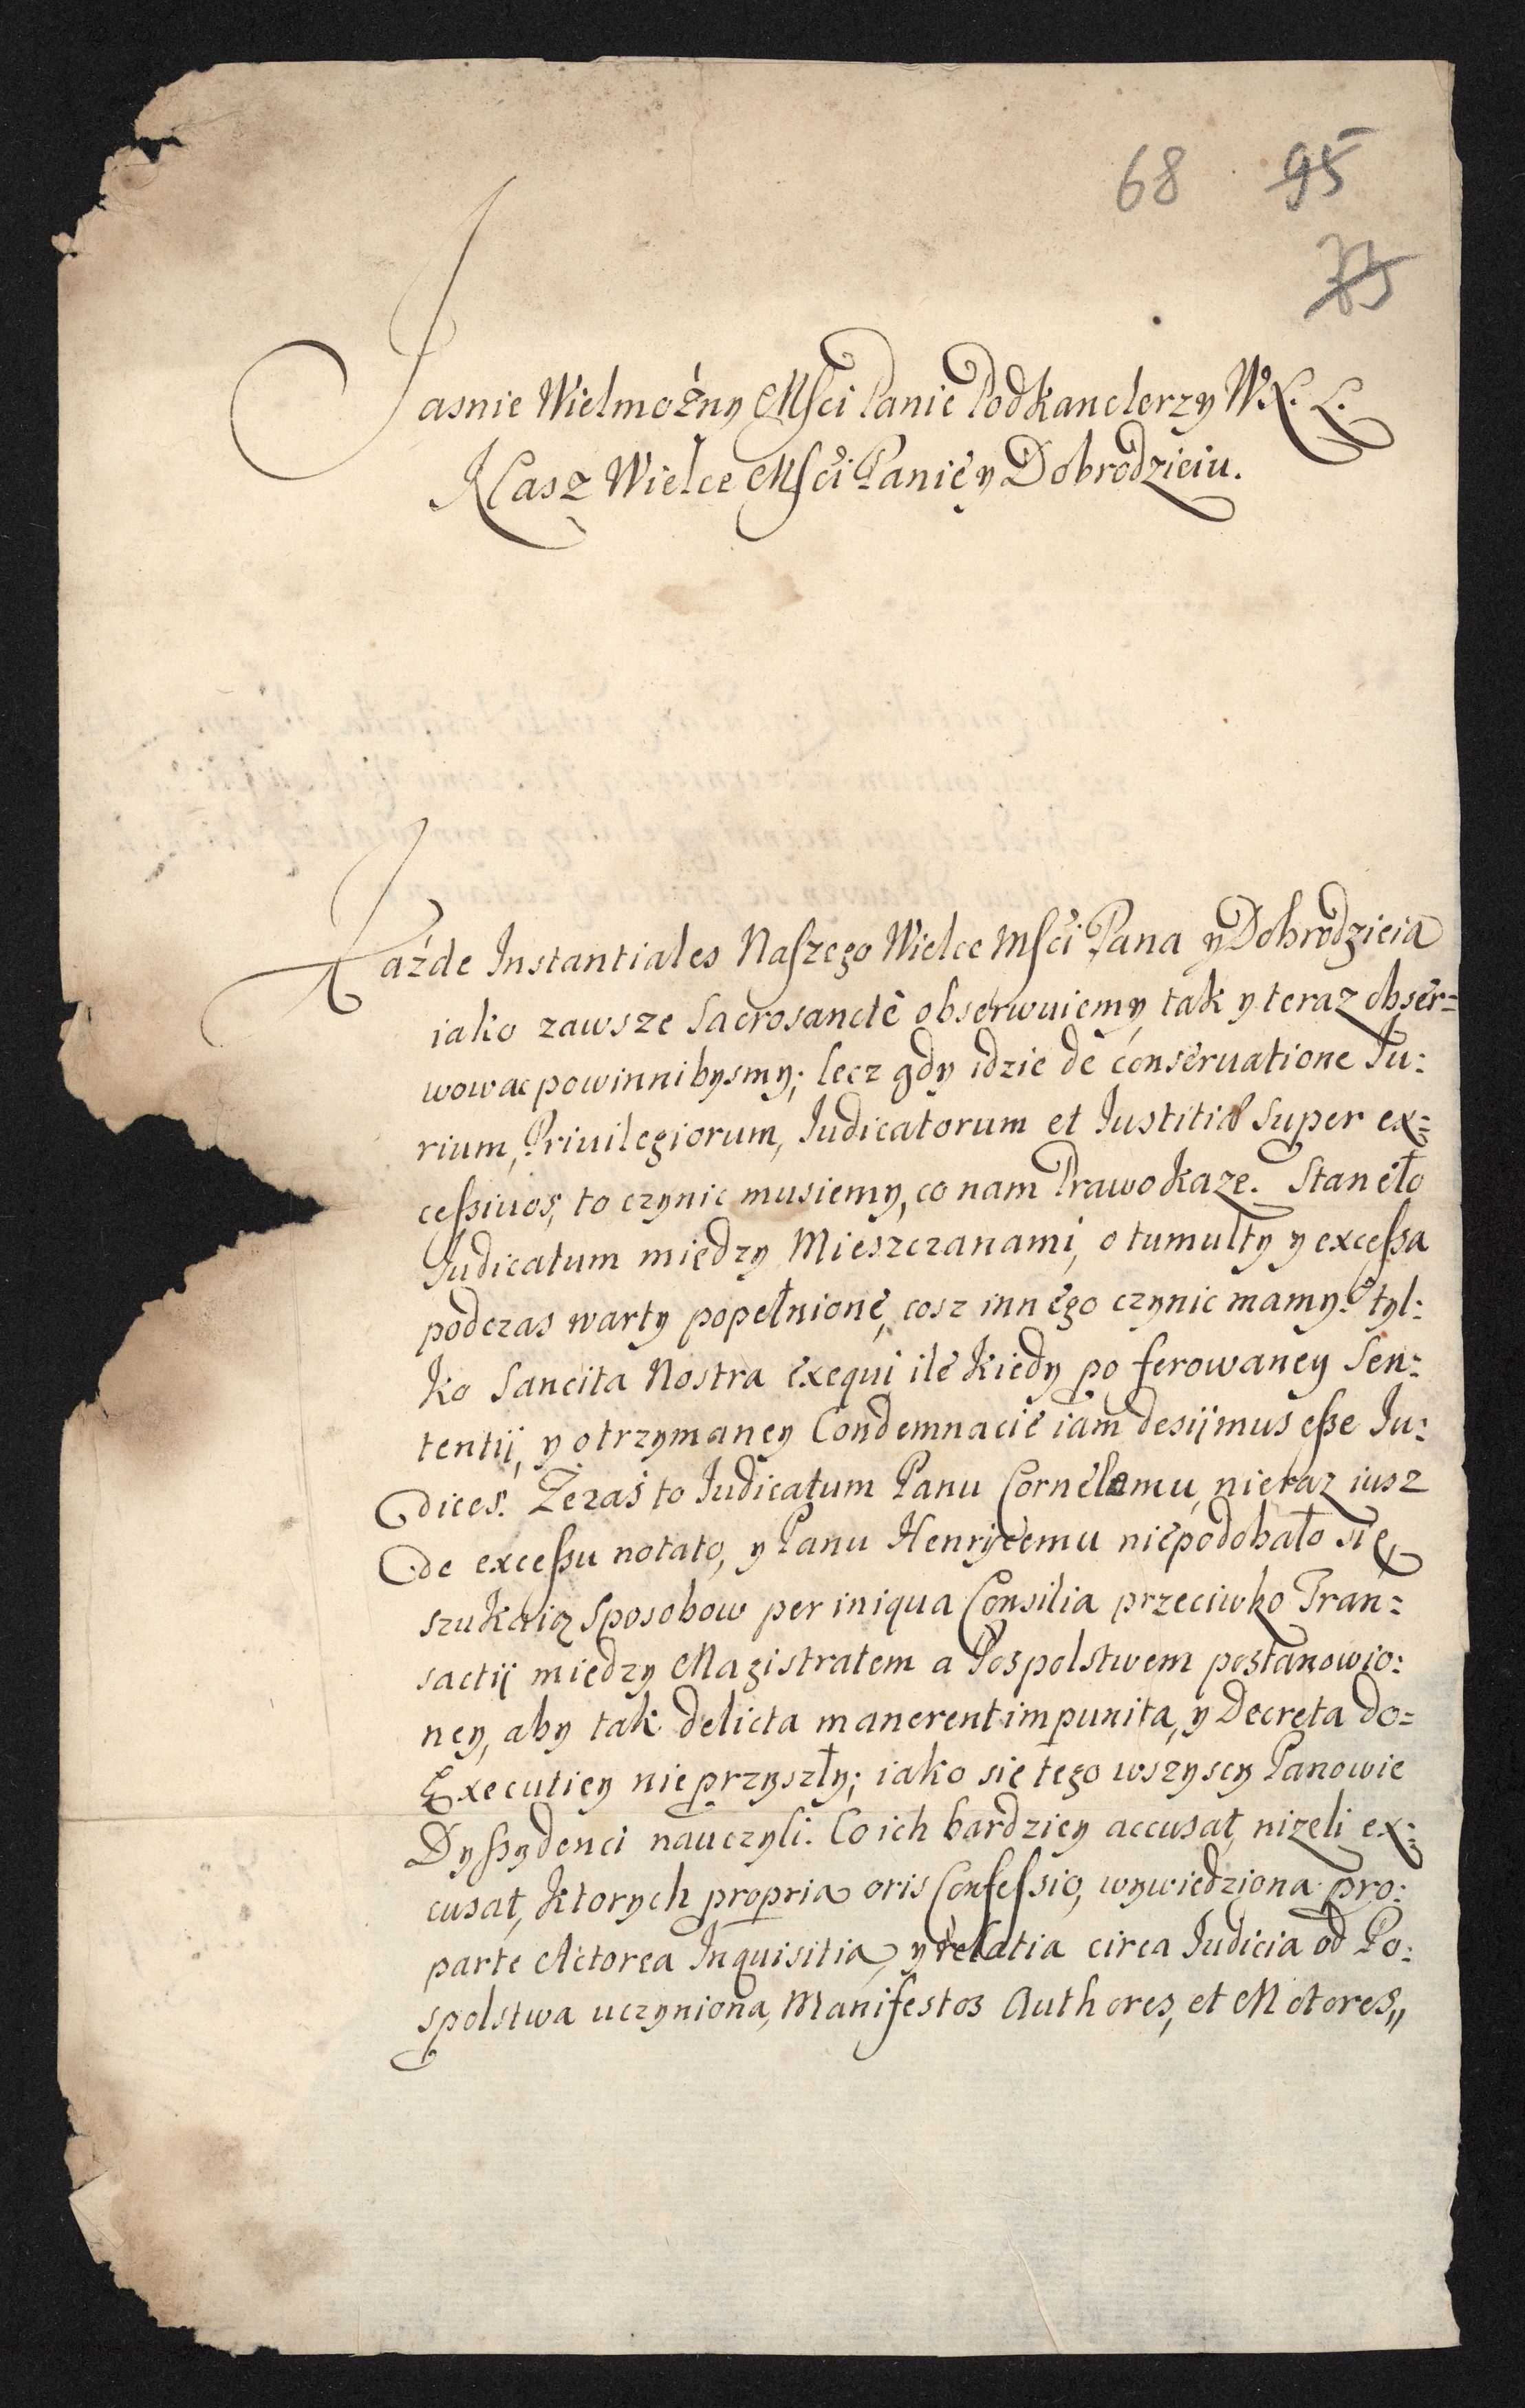 68 95
73
Jasnie Wielmożny Mści Panie Podkanclerzy W. X. L.
Nasz Wielce Mści Panie y Dobrodzieiu.
Każde Instantiales Naszego Wielce Mści Pana y Dobrodzieia
iako zawsze Sacrosancté obserwuiemy, tak y teraz obser=
wowac powinnibysmy; lecz gdy idzie de conseruatione Ju:
rium, Priuilegiorum, Iudicatorum et Iustitiæ super ex=
ceßiuos, to czynic musiemy, co nam Prawo kaze. Staneło
Judicatum między Mieszczanami, o tumulty y exceßa
podczas warty popełnione, cosz innego czynic mamy? tyl:
ko Sancita Nostra exequi, ile kiedy po ferowaney Sen:
tentij, y otrzymaney Condemnacie iam desijmus eße Ju:
dices. Zezaś to Iudicatum Panu Cornelemu, nieraz iusz
de exceßu notato, y Panu Henrycemu niepodobało się,
szukaią sposobow per iniqua Consilia przeciwko Tran=
sactij między Magistratem a Pospolstwem postanowio:
ney, aby tak delicta manerent impunita, y Decreta do=
Executiey nie przyszły; iako się tego wszyscy Panowie
Dyßydenci nauczyli. Co ich bardziey accusat, nizeli ex:
cusat, ktorych propria oris Confeßio, wywiedziona pro:
parte Actorea Inquisitia, y relatia circa Iudicia od Po:
spolstwa uczyniona, Manifestos Authores, et Motores,,